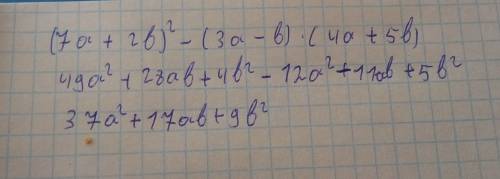 (7a + 2b)² - (3a - b) · (4a + 5b)
49a² + 28ab + 4b² - 12a² + 11ab + 5b²
37a² + 17ab + 9b²